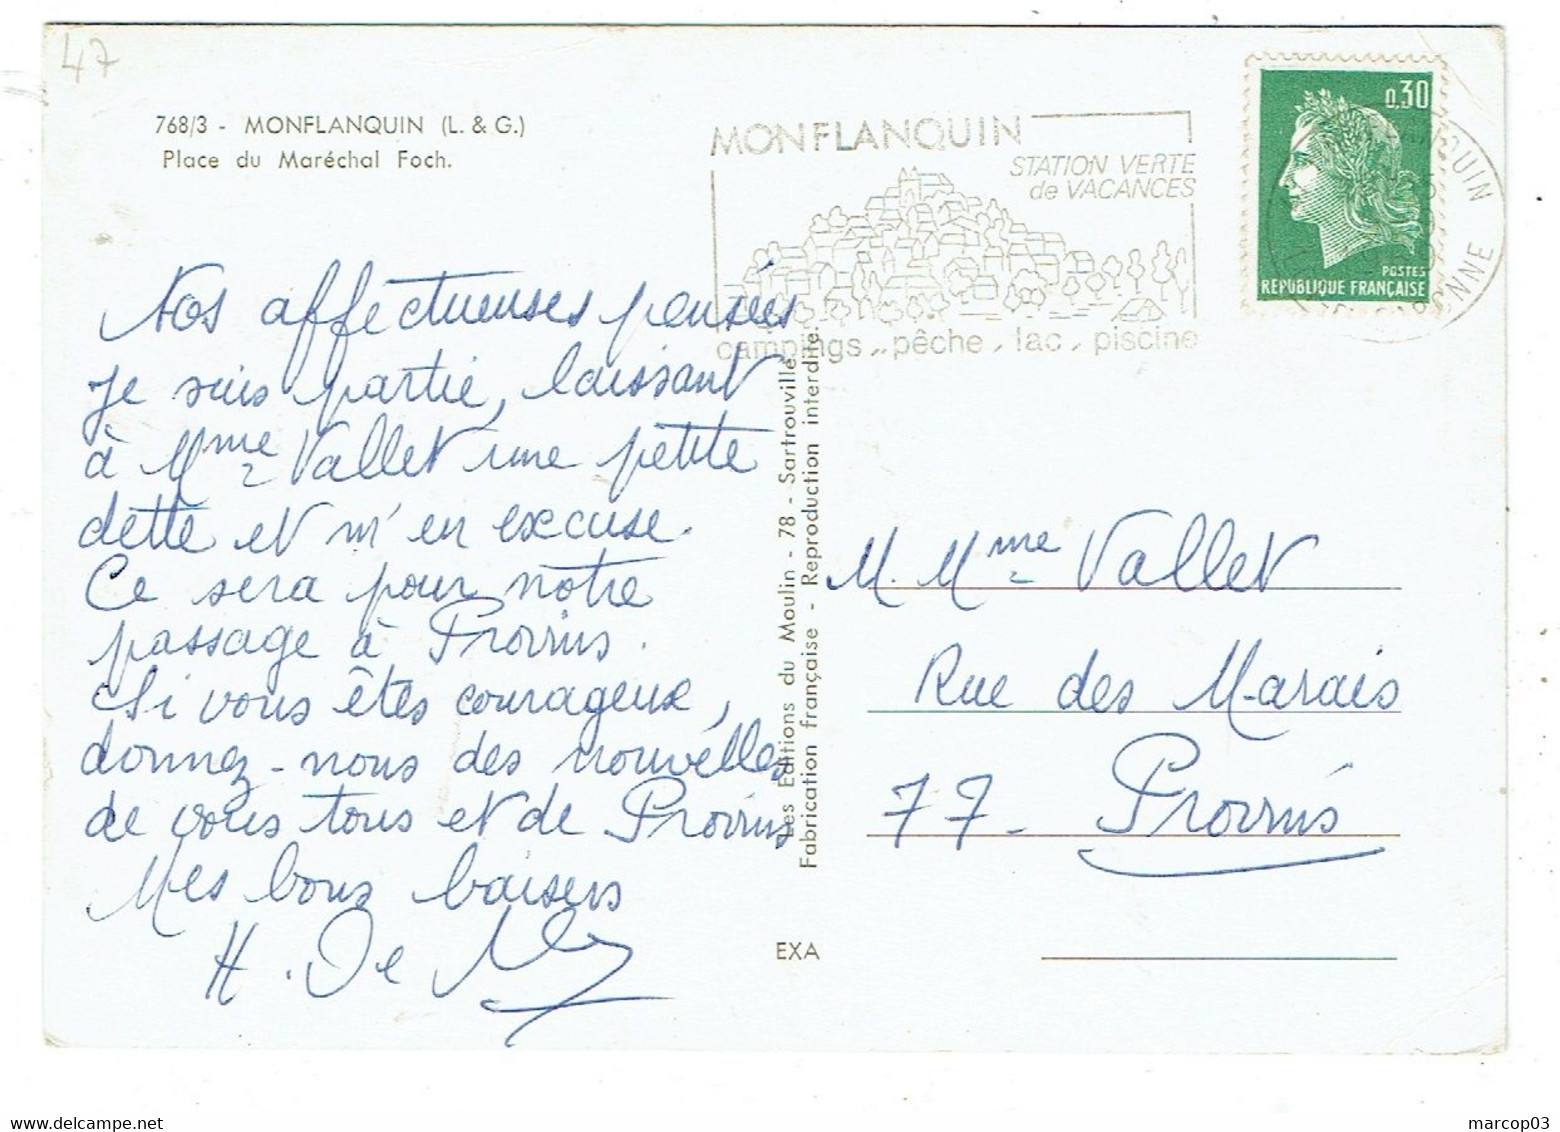 47
768/3 - MONFLANQUIN (L. & G.)
Place du Maréchal Foch.
MONFLANQUIN
STATION VERTE
de VACANCES
campings - pêche - lac - piscine
0,30
POSTES
REPUBLIQUE FRANÇAISE
Nos affectueuses pensées
Je suis partie, laissant
à Mme Vallet une petite
dette et m'en excuse.
Ce sera pour notre
passage à Provins.
Si vous êtes courageux,
donnez-nous des nouvelles
de vous tous et de Provins
Mes bons baisers
H. De
Les Editions du Moulin - 78 - Sartrouville
Fabrication française - Reproduction interdite.
EXA
M. Mme Vallet
Rue des Marais
77 - Provins
marcop03